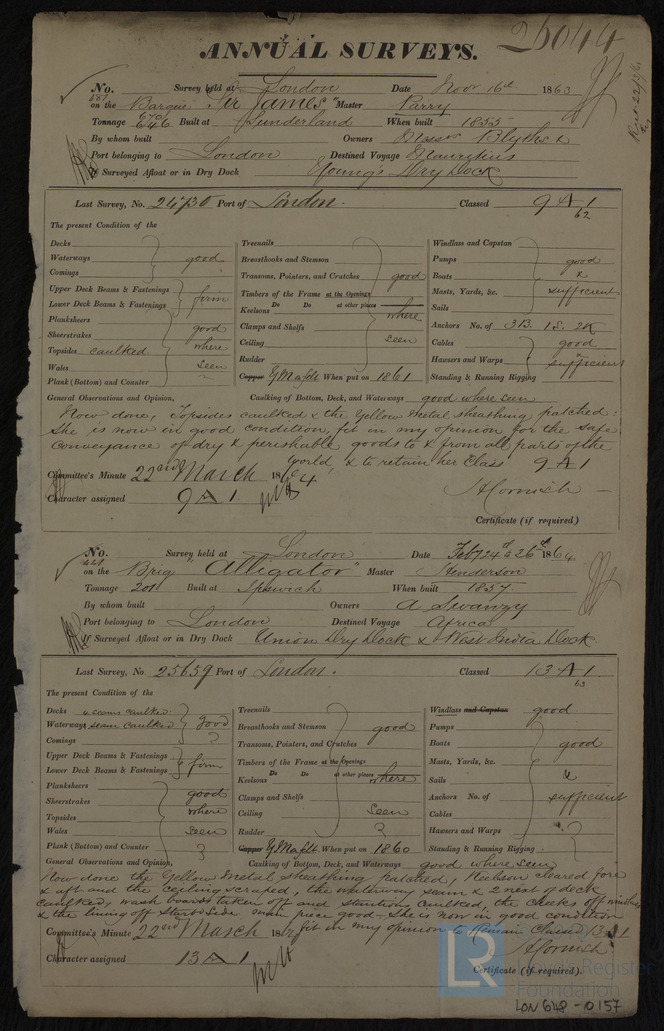 26044
ANNUAL SURVEYS.
No. 681 Survey held at London Date Nov 16th 1863
on the Barque "Sir James" Master Parry
Tonnage 670/646 Built at Sunderland When built 1855
By whom built Owners Messrs Blyths &
Port belonging to London Destined Voyage Mauritius
If Surveyed Afloat or in Dry Dock Young's Dry Dock
Last Survey, No. 24730 Port of London. Classed 9 A 1
62
The present Condition of the
Decks
Waterways good
Comings
Upper Deck Beams & Fastenings
Lower Deck Beams & Fastenings firm
Planksheers
Sheerstrakes good
Topsides caulked where
Wales seen
Plank (Bottom) and Counter
Treenails
Breasthooks and Stemson
Transoms, Pointers, and Crutches good
Timbers of the Frame at the Openings
Do Do at other places
Keelsons where
Clamps and Shelfs
Ceiling seen
Rudder
Copper Y Metal When put on 1861
Windlass and Capstan
Pumps good
Boats &
Masts, Yards, &c. sufficient
Sails
Anchors No. of 3B. 1S. 2K
Cables good
Hawsers and Warps sufficient
Standing & Running Rigging
General Observations and Opinion, Caulking of Bottom, Deck, and Waterways good where seen
Now done, Topsides caulked & the Yellow Metal sheathing patched:
She is now in good condition, fit in my opinion for the safe
conveyance of dry & perishable goods to & from all parts of the
World, & to retain her Class 9 A 1
Committee's Minute 22nd March 1864
Character assigned 9 A 1.
Certificate (if required)
No. 628 Survey held at London Date Feby 24th & 26th 1864
on the Brig "Alligator" Master Henderson
Tonnage 201 Built at Ipswich When built 1857
By whom built Owners A Swanzy
Port belonging to London Destined Voyage Africa
If Surveyed Afloat or in Dry Dock Union Dry Dock & West India Dock.
Last Survey, No 25659 Port of London. Classed 13 A 1
63
The present Condition of the
Decks 4 seams caulked
Waterways seam caulked good
Comings
Upper Deck Beams & Fastenings
Lower Deck Beams & Fastenings firm
Planksheers good
Sheerstrakes
Topsides where
Wales seen
Plank (Bottom) and Counter
Treenails
Breasthooks and Stemson good
Transoms, Pointers, and Crutches
Timbers of the Frame at the Openings
Do Do at other places
Keelsons where
Clamps and Shelfs
Ceiling seen
Rudder
Copper Y Metal When put on 1860
Windlass and Capstan good
Pumps
Boats good
Masts, Yards, &c.
Sails &
Anchors No. of sufficient
Cables
Hawsers and Warps
Standing & Running Rigging
General Observations and Opinion, Caulking of Bottom, Deck, and Waterways good where seen
Now done the Yellow Metal sheathing patched, Keelson cleared fore
& aft and the ceiling scraped, the waterway seam & 2 next of deck
caulked, wash boards taken off and stantions caulked, the cheeks off windlass
& the lining off Starbd Side main piece good - She is now in good condition
fit in my opinion to Remain Classed 13 A 1
Committee's Minute 22nd March
Character assigned 13 A 1
Certificate (if required)
LR
Lloyd's Register
Foundation
LON 648 - 0157